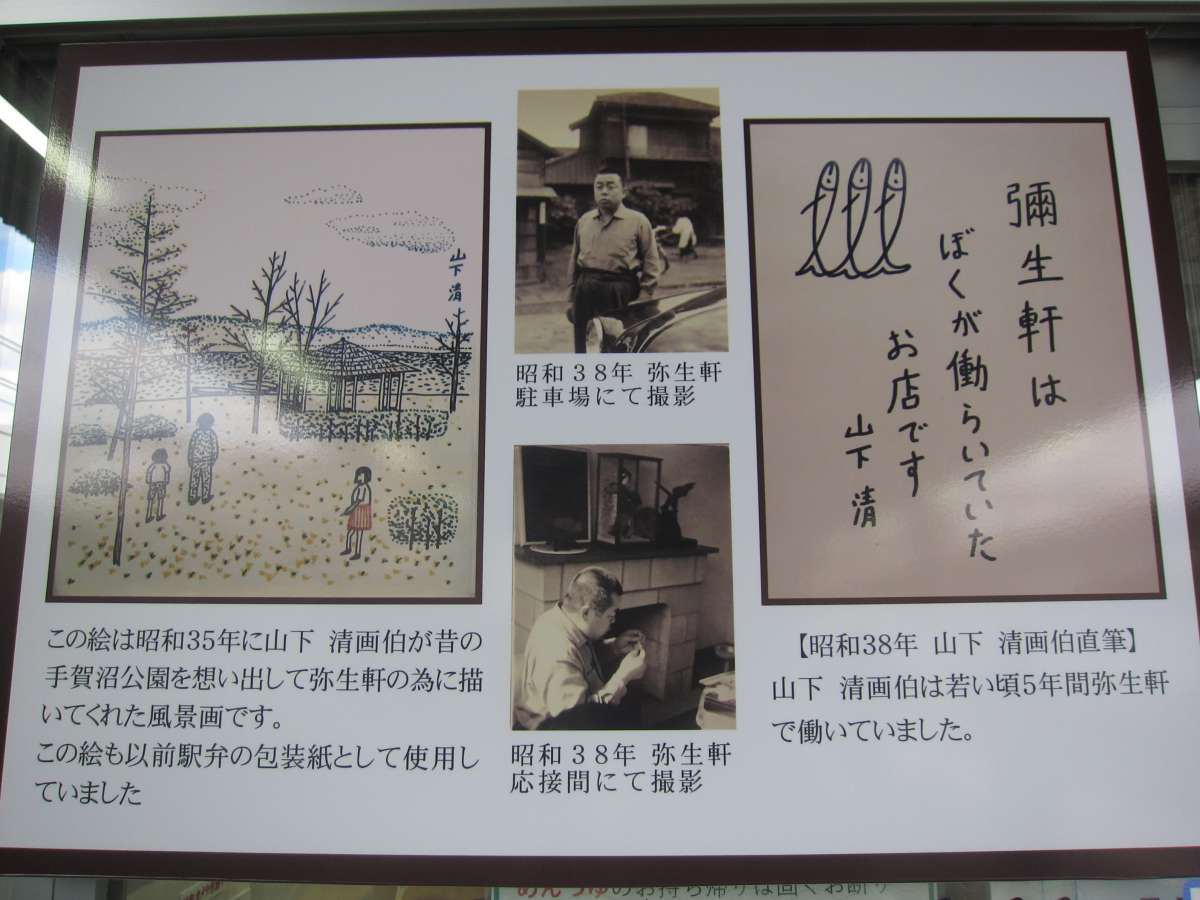 山下 清
この絵は昭和35年に山下 清画伯が昔の
手賀沼公園を想い出して弥生軒の為に描
いてくれた風景画です。
この絵も以前駅弁の包装紙として使用し
ていました
昭和３８年 弥生軒
駐車場にて撮影
昭和３８年 弥生軒
応接間にて撮影
彌生軒は
ぼくが働らいていた
お店です
山下 清
【昭和38年 山下 清画伯直筆】
山下 清画伯は若い頃5年間弥生軒
で働いていました。
めんつゆのお持ち帰りは固くお断り